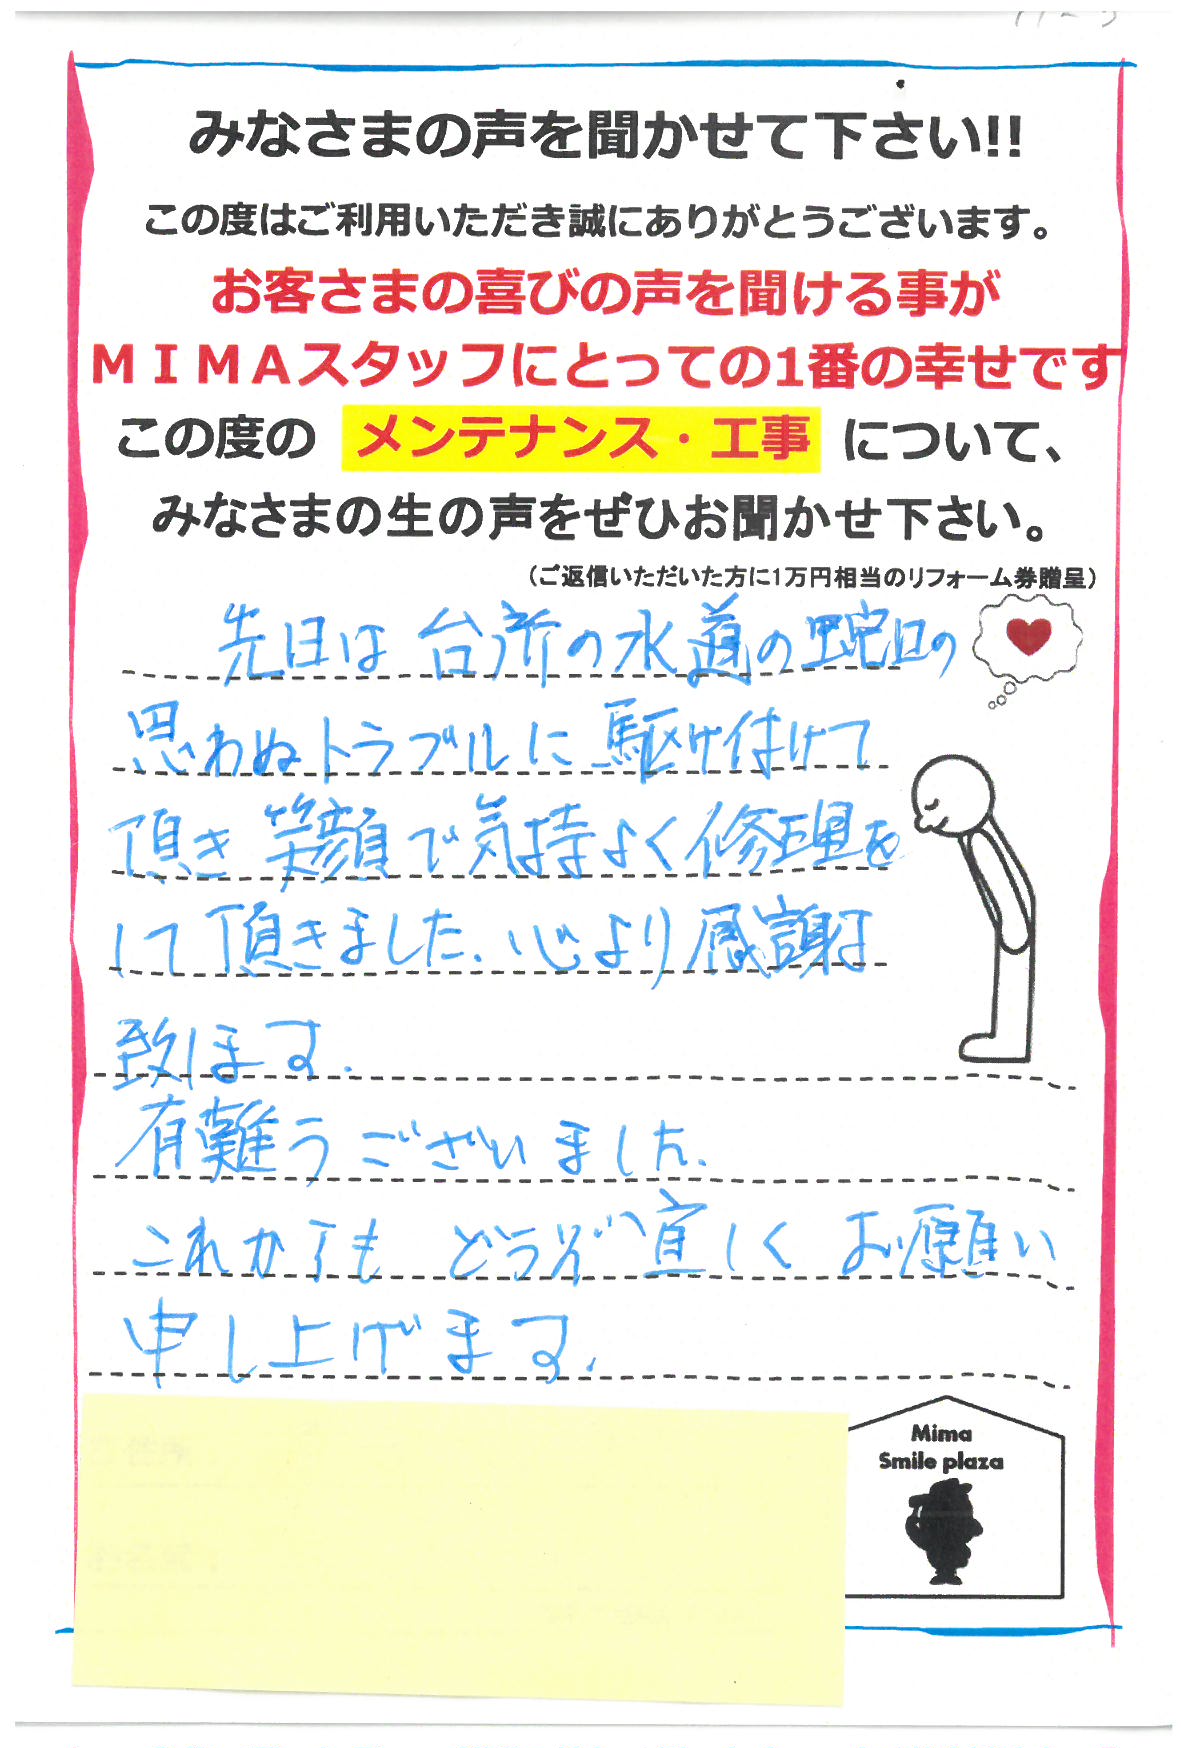 みなさまの声を聞かせて下さい!!
この度はご利用いただき誠にありがとうございます。
お客さまの喜びの声を聞ける事が
ＭＩＭＡスタッフにとっての1番の幸せです
この度の メンテナンス・工事 について、
みなさまの生の声をぜひお聞かせ下さい。
（ご返信いただいた方に1万円相当のリフォーム券贈呈）
先日は 台所の水道の蛇口の
思わぬトラブルに駆け付けて
頂き 笑顔で気持よく修理を
して頂きました、心より感謝
致します.
有難うございました.
これからも どうぞ宜しく お願い
申し上げます.
Mima
Smile plaza